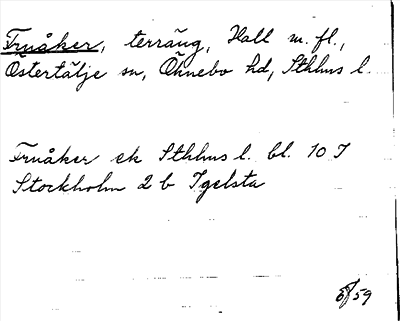 Fruåker, terräng, Hall m. fl.,
Östertälje sn, Öknebo hd, Sthlms l.
Fruåker ek Sthlms l. bl. 10 J
Stockholm 2 b Igelsta
59